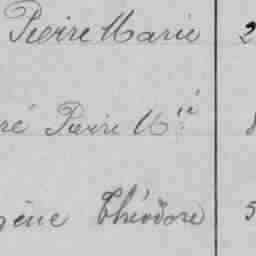 Pierre Marie 2
ré Pierre Mie 8
gène Théodore 5